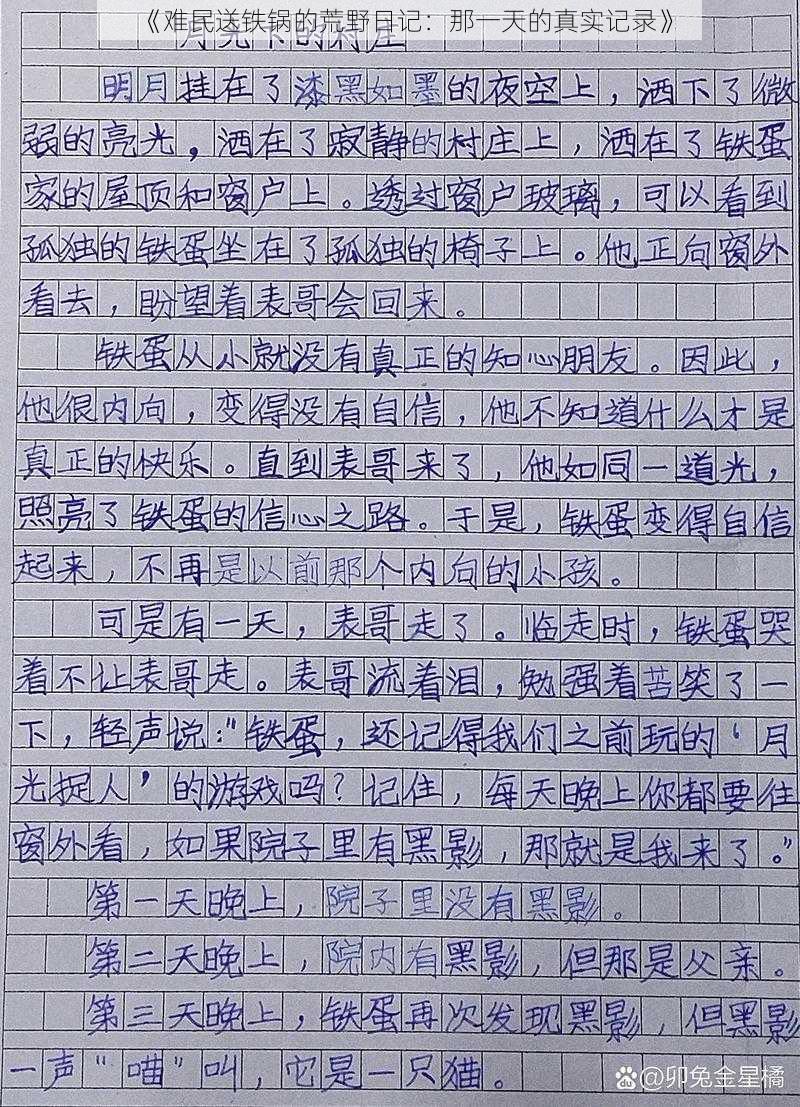 《难民送铁锅的荒野日记：那一天的真实记录》
月光下的村庄
明月挂在了漆黑如墨的夜空上，洒下了微
弱的亮光，洒在了寂静的村庄上，洒在了铁蛋
家的屋顶和窗户上。透过窗户玻璃，可以看到
孤独的铁蛋坐在了孤独的椅子上。他正向窗外
看去，盼望着表哥会回来。
铁蛋从小就没有真正的知心朋友。因此，
他很内向，变得没有自信，他不知道什么才是
真正的快乐。直到表哥来了，他如同一道光，
照亮了铁蛋的信心之路。于是，铁蛋变得自信
起来，不再是以前那个内向的小孩。
可是有一天，表哥走了。临走时，铁蛋哭
着不让表哥走。表哥流着泪，勉强着苦笑了一
下，轻声说：“铁蛋，还记得我们之前玩的‘月
光捉人’的游戏吗？记住，每天晚上你都要往
窗外看，如果院子里有黑影，那就是我来了。”
第一天晚上，院子里没有黑影。
第二天晚上，院内有黑影，但那是父亲。
第三天晚上，铁蛋再次发现黑影，但黑影
一声“喵”叫，它是一只猫。
Bai度@卯兔金星橘